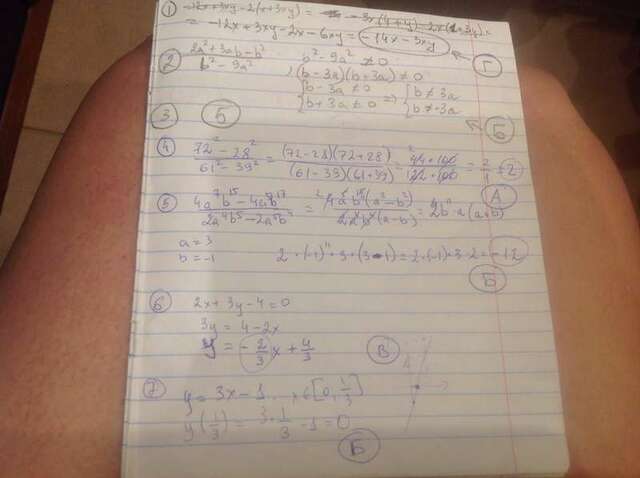 ① -12x+3xy-2(x+3xy)=
= -12x+3xy-2x-6xy= -14x-3xy
Г
② 2a²+3ab-b² / b²-9a² b²-9a² ≠0
(b-3a)(b+3a)≠0
{b-3a≠0 => {b≠3a
{b+3a≠0 {b≠-3a
Б
③ Б
④ 72²-28² / 61²-39² = (72-28)(72+28) / (61-39)(61+39) = 44·100 / 22·100 = 2/1 = 2
А
⑤ 4a⁷b¹⁵-4a⁵b¹⁷ / 2a⁴b⁵-2a³b⁶ = 4a⁵b¹⁵(a²-b²) / 2a⁴b⁴(a-b) = 2b¹¹·a(a+b)
a=3
b=-1 2·(-1)¹¹·3·(3-1)=2·(-1)·3·2=-12
Б
⑥ 2x+3y-4=0
3y=4-2x
y=-2/3x+4/3
В
⑦ y=3x-1 [0,1/3]
y(1/3)=3·1/3-1=0
Б